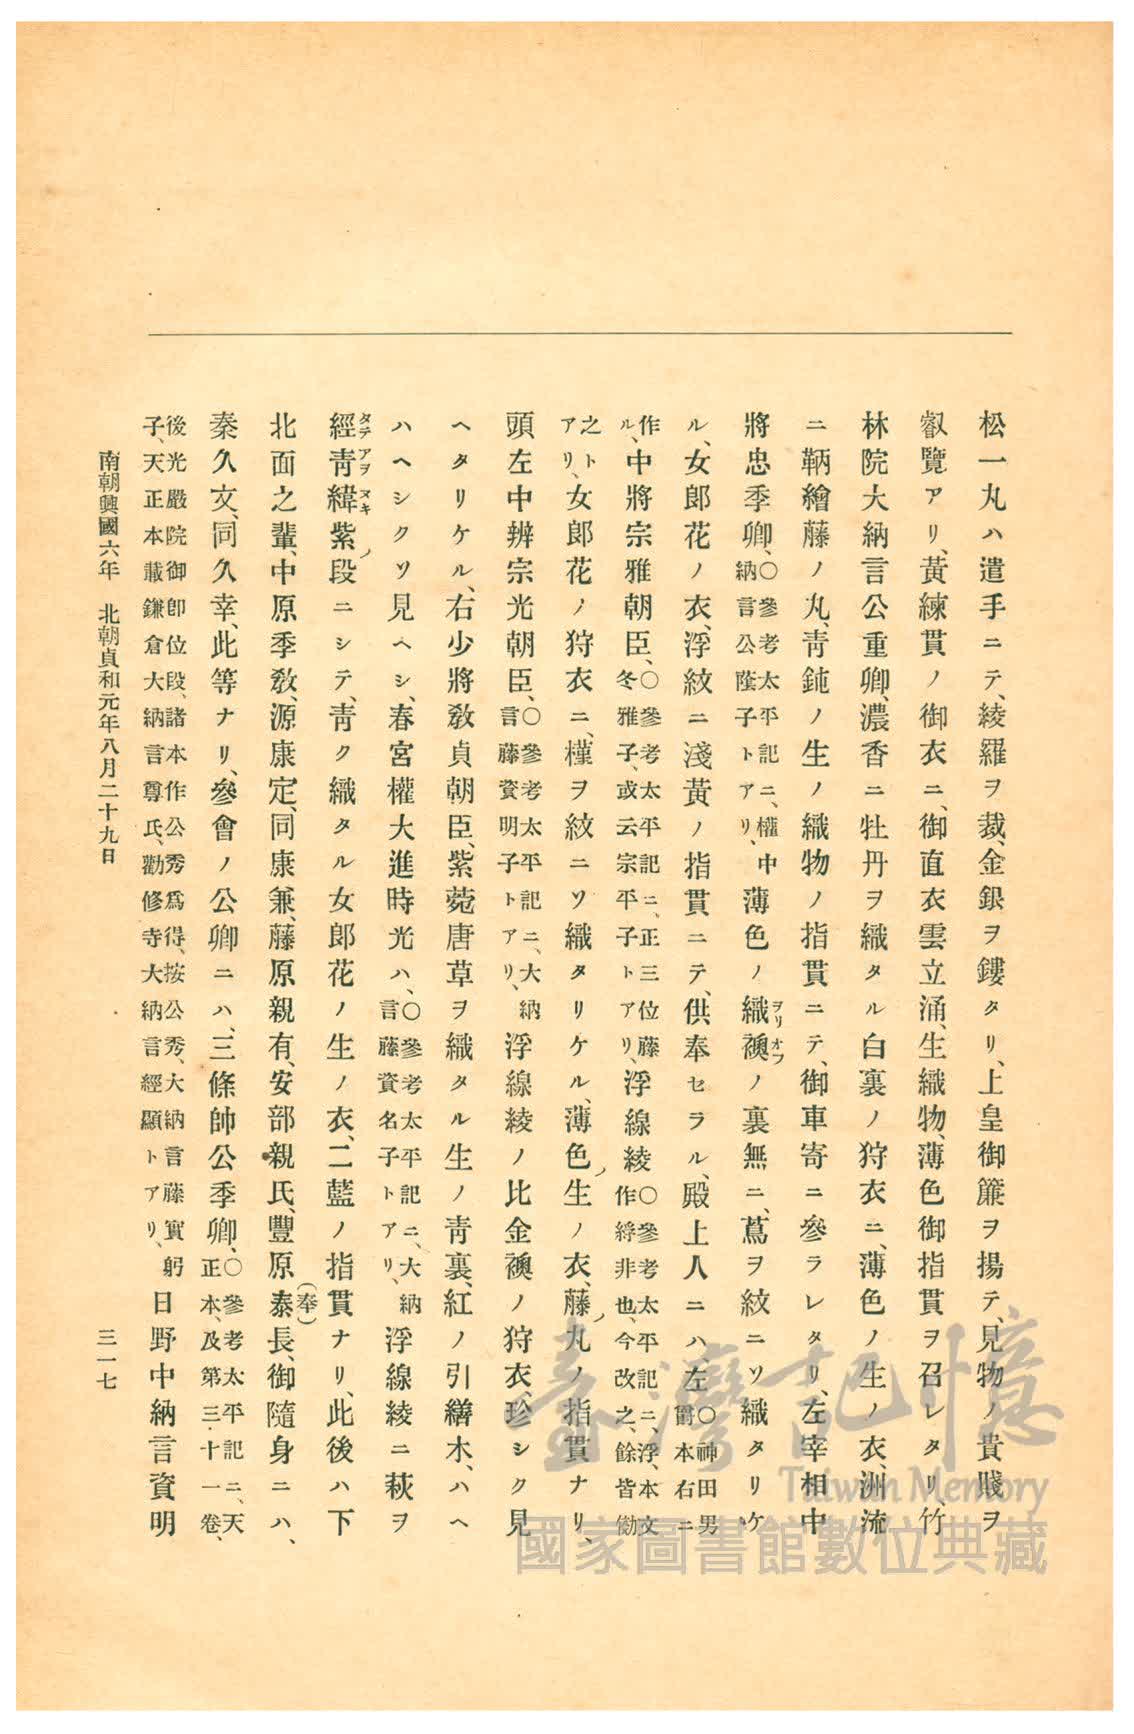 松一丸ハ遣手ニテ、綾羅ヲ裁、金銀ヲ鏤タリ、上皇御簾ヲ揚テ、見物ノ貴賤ヲ
叡覽アリ、黃練貫ノ御衣ニ、御直衣雲立涌、生織物、薄色御指貫ヲ召レタリ、竹
林院大納言公重卿、濃香ニ牡丹ヲ織タル白裏ノ狩衣ニ、薄色ノ生ノ衣、洲流
ニ鞆繪藤ノ丸、靑鈍ノ生ノ織物ノ指貫ニテ、御車寄ニ參ラレタリ、左宰相中
將忠季卿、〇參考太平記ニ、權中納言公蔭子トアリ、薄色ノ織襖ヲリオフノ裏無ニ、蔦ヲ紋ニソ織タリケ
ル、女郎花ノ衣、浮紋ニ淺黃ノ指貫ニテ、供奉セラル、殿上人ニハ、左〇神田男爵本右ニ
作ル、中將宗雅朝臣、〇參考太平記ニ、正三位藤冬雅子、或云宗平子トアリ、浮線綾〇參考太平記ニ、浮、本文作綒非也、今改之、餘皆勸
之トアリ、女郎花ノ狩衣ニ、槿ヲ紋ニソ織タリケル、薄色ノ生ノ衣、藤ノ丸ノ指貫ナリ、
頭左中辨宗光朝臣、〇參考太平記ニ、大納言藤資明子トアリ、浮線綾ノ比金襖ノ狩衣、珍シク見
ヘタリケル、右少將敎貞朝臣、紫菀唐草ヲ織タル生ノ靑裏、紅ノ引繕木、ハヘ
ハヘシクソ見ヘシ、春宮權大進時光ハ、〇參考太平記ニ、大納言藤資名子トアリ、浮線綾ニ萩ヲ
經タテ靑アヲ緯ヌキ紫ノ段ニシテ、靑ク織タル女郎花ノ生ノ衣、二藍ノ指貫ナリ、此後ハ下
北面之輩、中原季敎、源康定、同康兼、藤原親有、安部親氏、豐原泰(奉)長、御隨身ニハ、
秦久文、同久幸、此等ナリ、參會ノ公卿ニハ、三條帥公季卿、〇參考太平記ニ、天正本、及第三十一卷、
後光嚴院御卽位段、諸本作公秀爲得、按公秀、大納言藤實躬子、天正本載鎌倉大納言尊氏、勸修寺大納言經顯トアリ、日野中納言資明
南朝興國六年　北朝貞和元年八月二十九日
三一七
臺灣記憶
Taiwan Memory
國家圖書館數位典藏